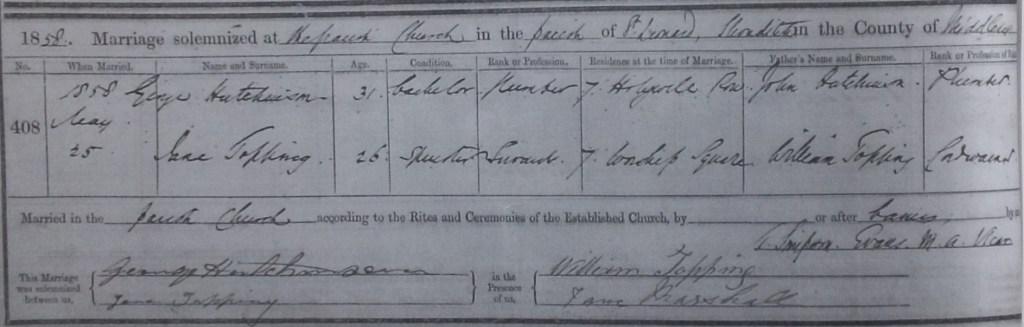 1858. Marriage solemnized at the parish Church in the parish of St. Leonard, Shoreditch in the County of Middlesex
No. When Married. Name and Surname. Age. Condition. Rank or Profession. Residence at the time of Marriage. Father's Name and Surname. Rank or Profession of
1858 George Hutchinson 31 bachelor Plumber 7 Holywell Row John Hutchinson Plumber
408 May
25 Jane Topping 26 Spinster Servant 7 Worship Square William Topping Cordwainer
Married in the parish Church according to the Rites and Ceremonies of the Established Church, by or after banns, by
Simpson Evans M.A. Vicar
This Marriage was solemnized between us, George Hutchinson in the Presence of us, William Topping
Jane Topping Jane Marshall